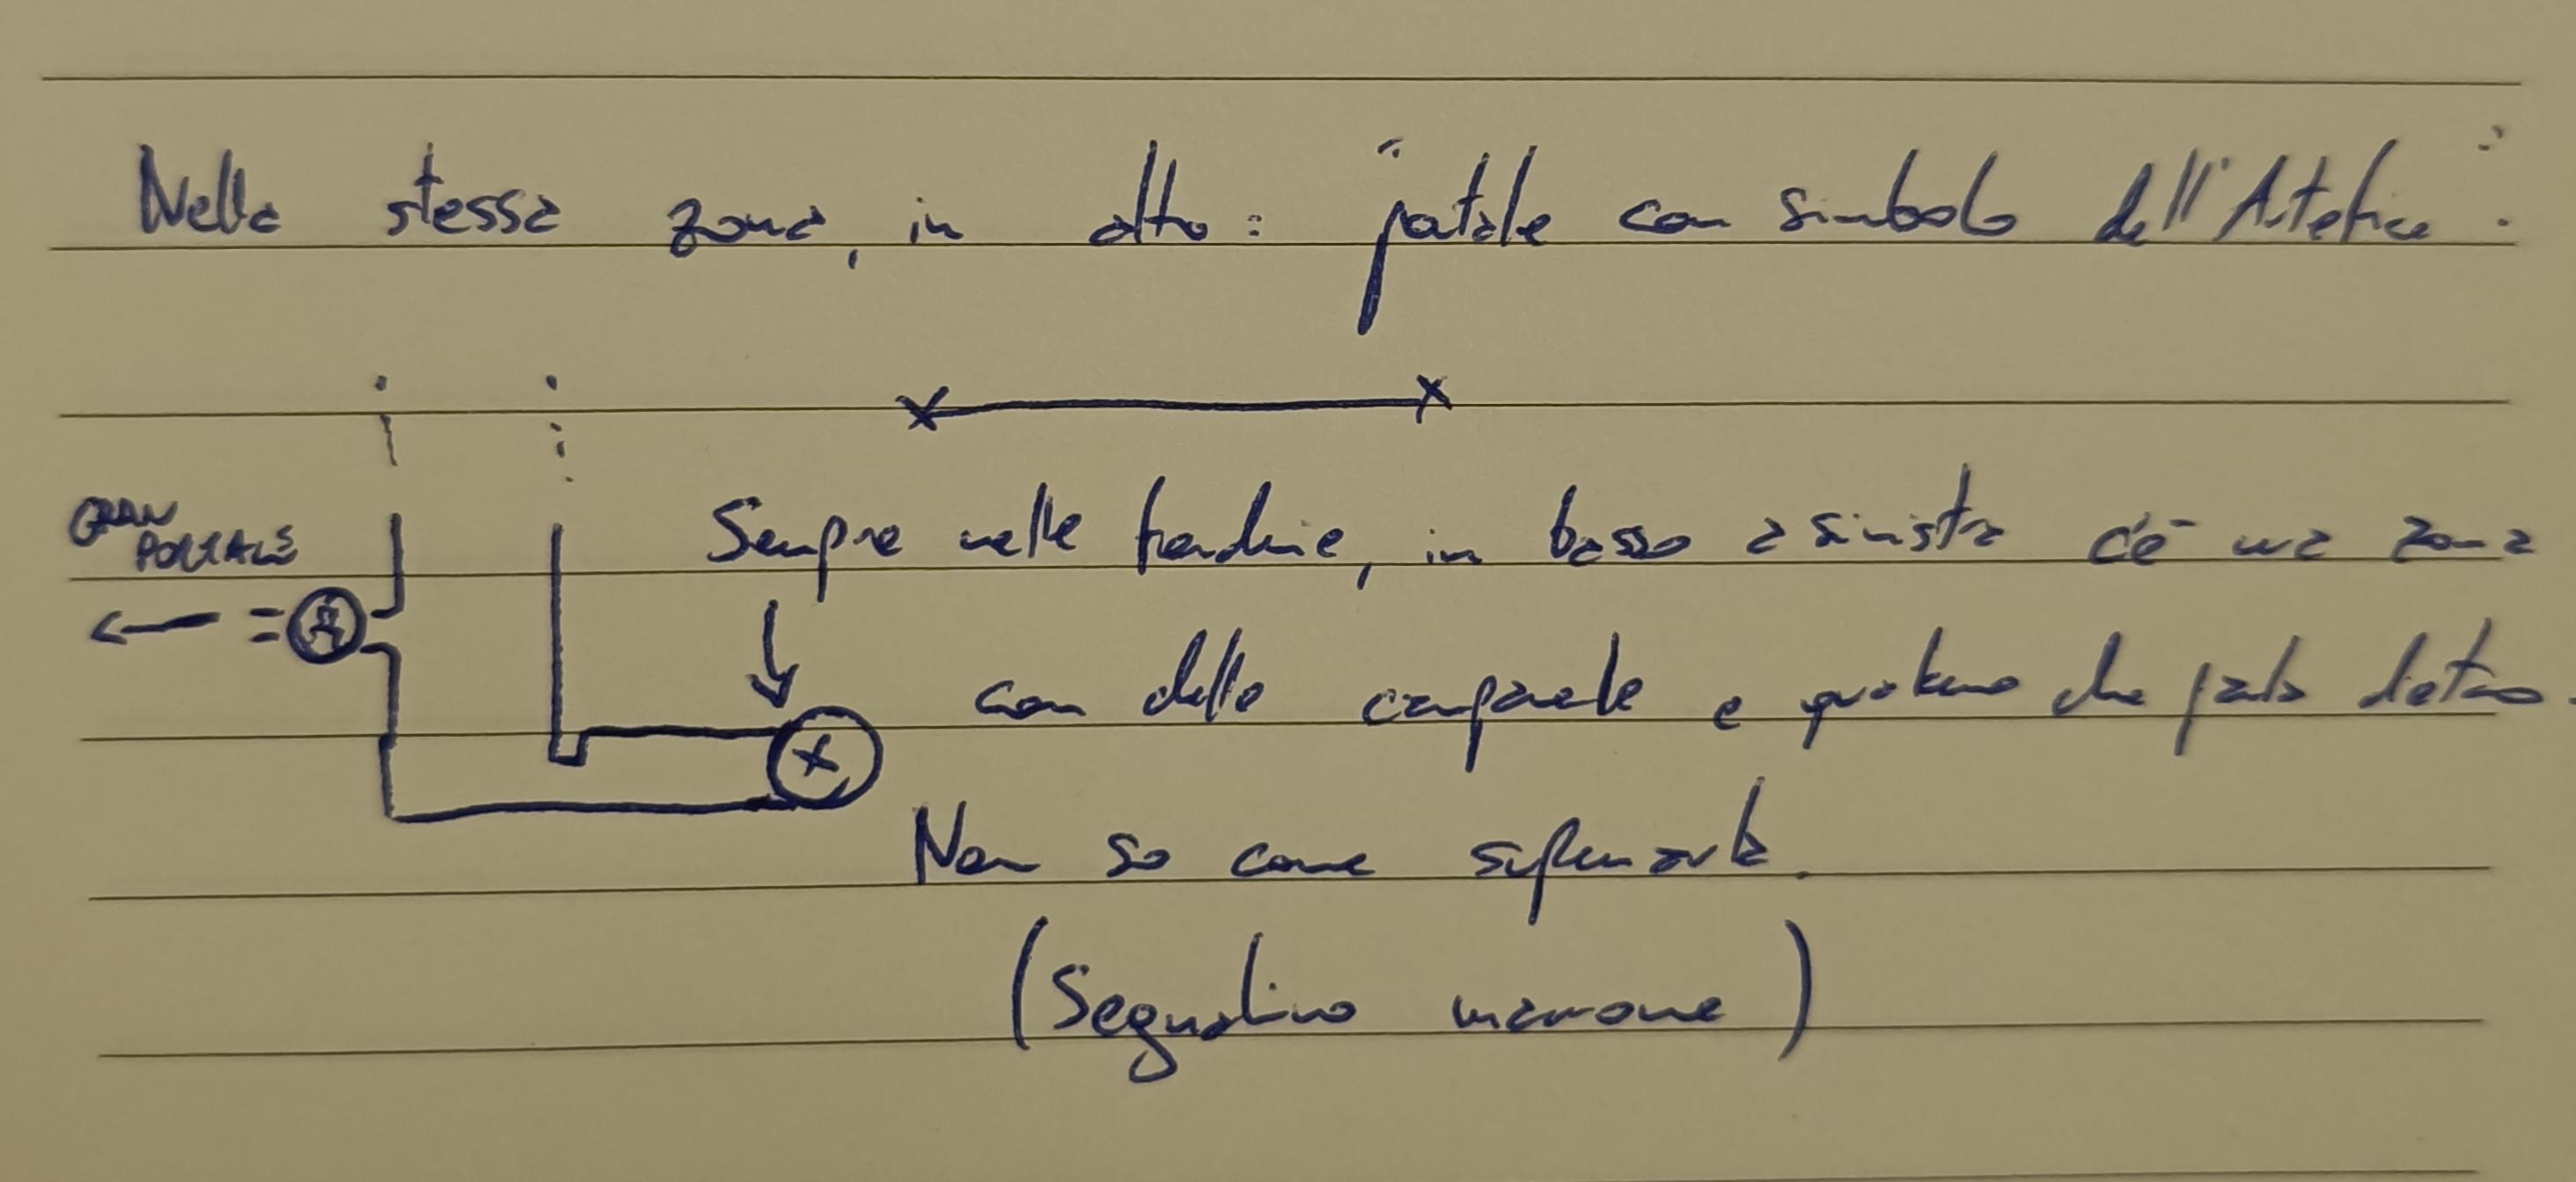 Nella stessa zona, in alto: "portale con simbolo dell'Artefice".
GRAN
PORTALE
Sempre nelle frondine, in basso a sinistra c'è una zona
con delle campanelle e qualcuno che parla dietro.
Non so come superarla.
(Segnalino marrone)